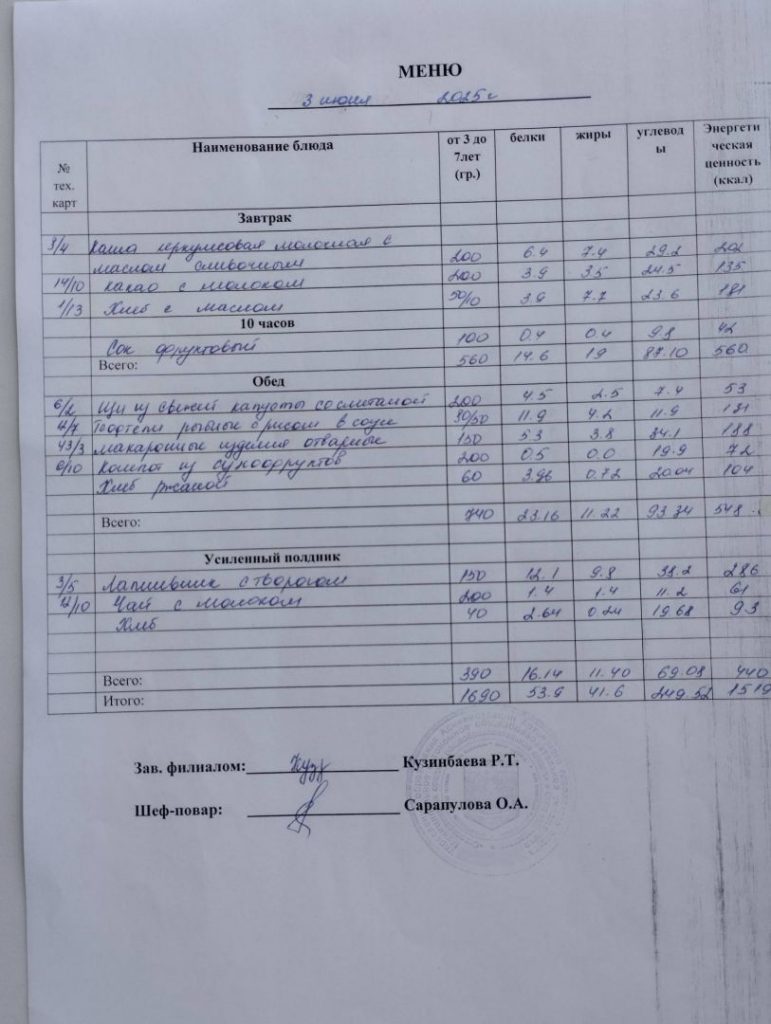 МЕНЮ
3 июня 2025 г
№ тех. карт Наименование блюда от 3 до 7лет (гр.) белки жиры углеводы Энергетическая ценность (ккал)
Завтрак
3/4 Каша геркулесовая молочная с
маслом сливочным 200 6.4 7.4 29.2 202
14/10 какао с молоком 200 3.9 3.5 24.5 135
1/13 Хлеб с маслом 50/10 3.9 7.7 23.6 181
10 часов
Сок фруктовый 100 0.4 0.4 9.8 42
Всего: 560 14.6 19 87.10 560
Обед
6/2 Щи из свежей капусты со сметаной 200 4.5 2.5 7.4 53
Тефтели рыбные с рисом в соусе 11.9 4.2 11.9 131
43/3 макаронные изделия отварные 150 5.3 3.8 34.1 188
6/10 Компот из сухофруктов 200 0.5 0.0 19.9 72
Хлеб ржаной 60 3.96 0.72 20.04 104
Всего: 740 23.16 11.22 93.34 548
Усиленный полдник
3/5 Лапшевник с творогом 150 12.1 9.8 38.2 286
12/10 Чай с молоком 200 1.4 1.4 11.2 61
Хлеб 40 2.64 0.24 19.68 93
Всего: 390 16.14 11.40 69.08 440
Итого: 1690 53.9 41.6 249.52 1519
Зав. филиалом: Куз Кузинбаева Р.Т.
Шеф-повар: Сарапулова О.А.